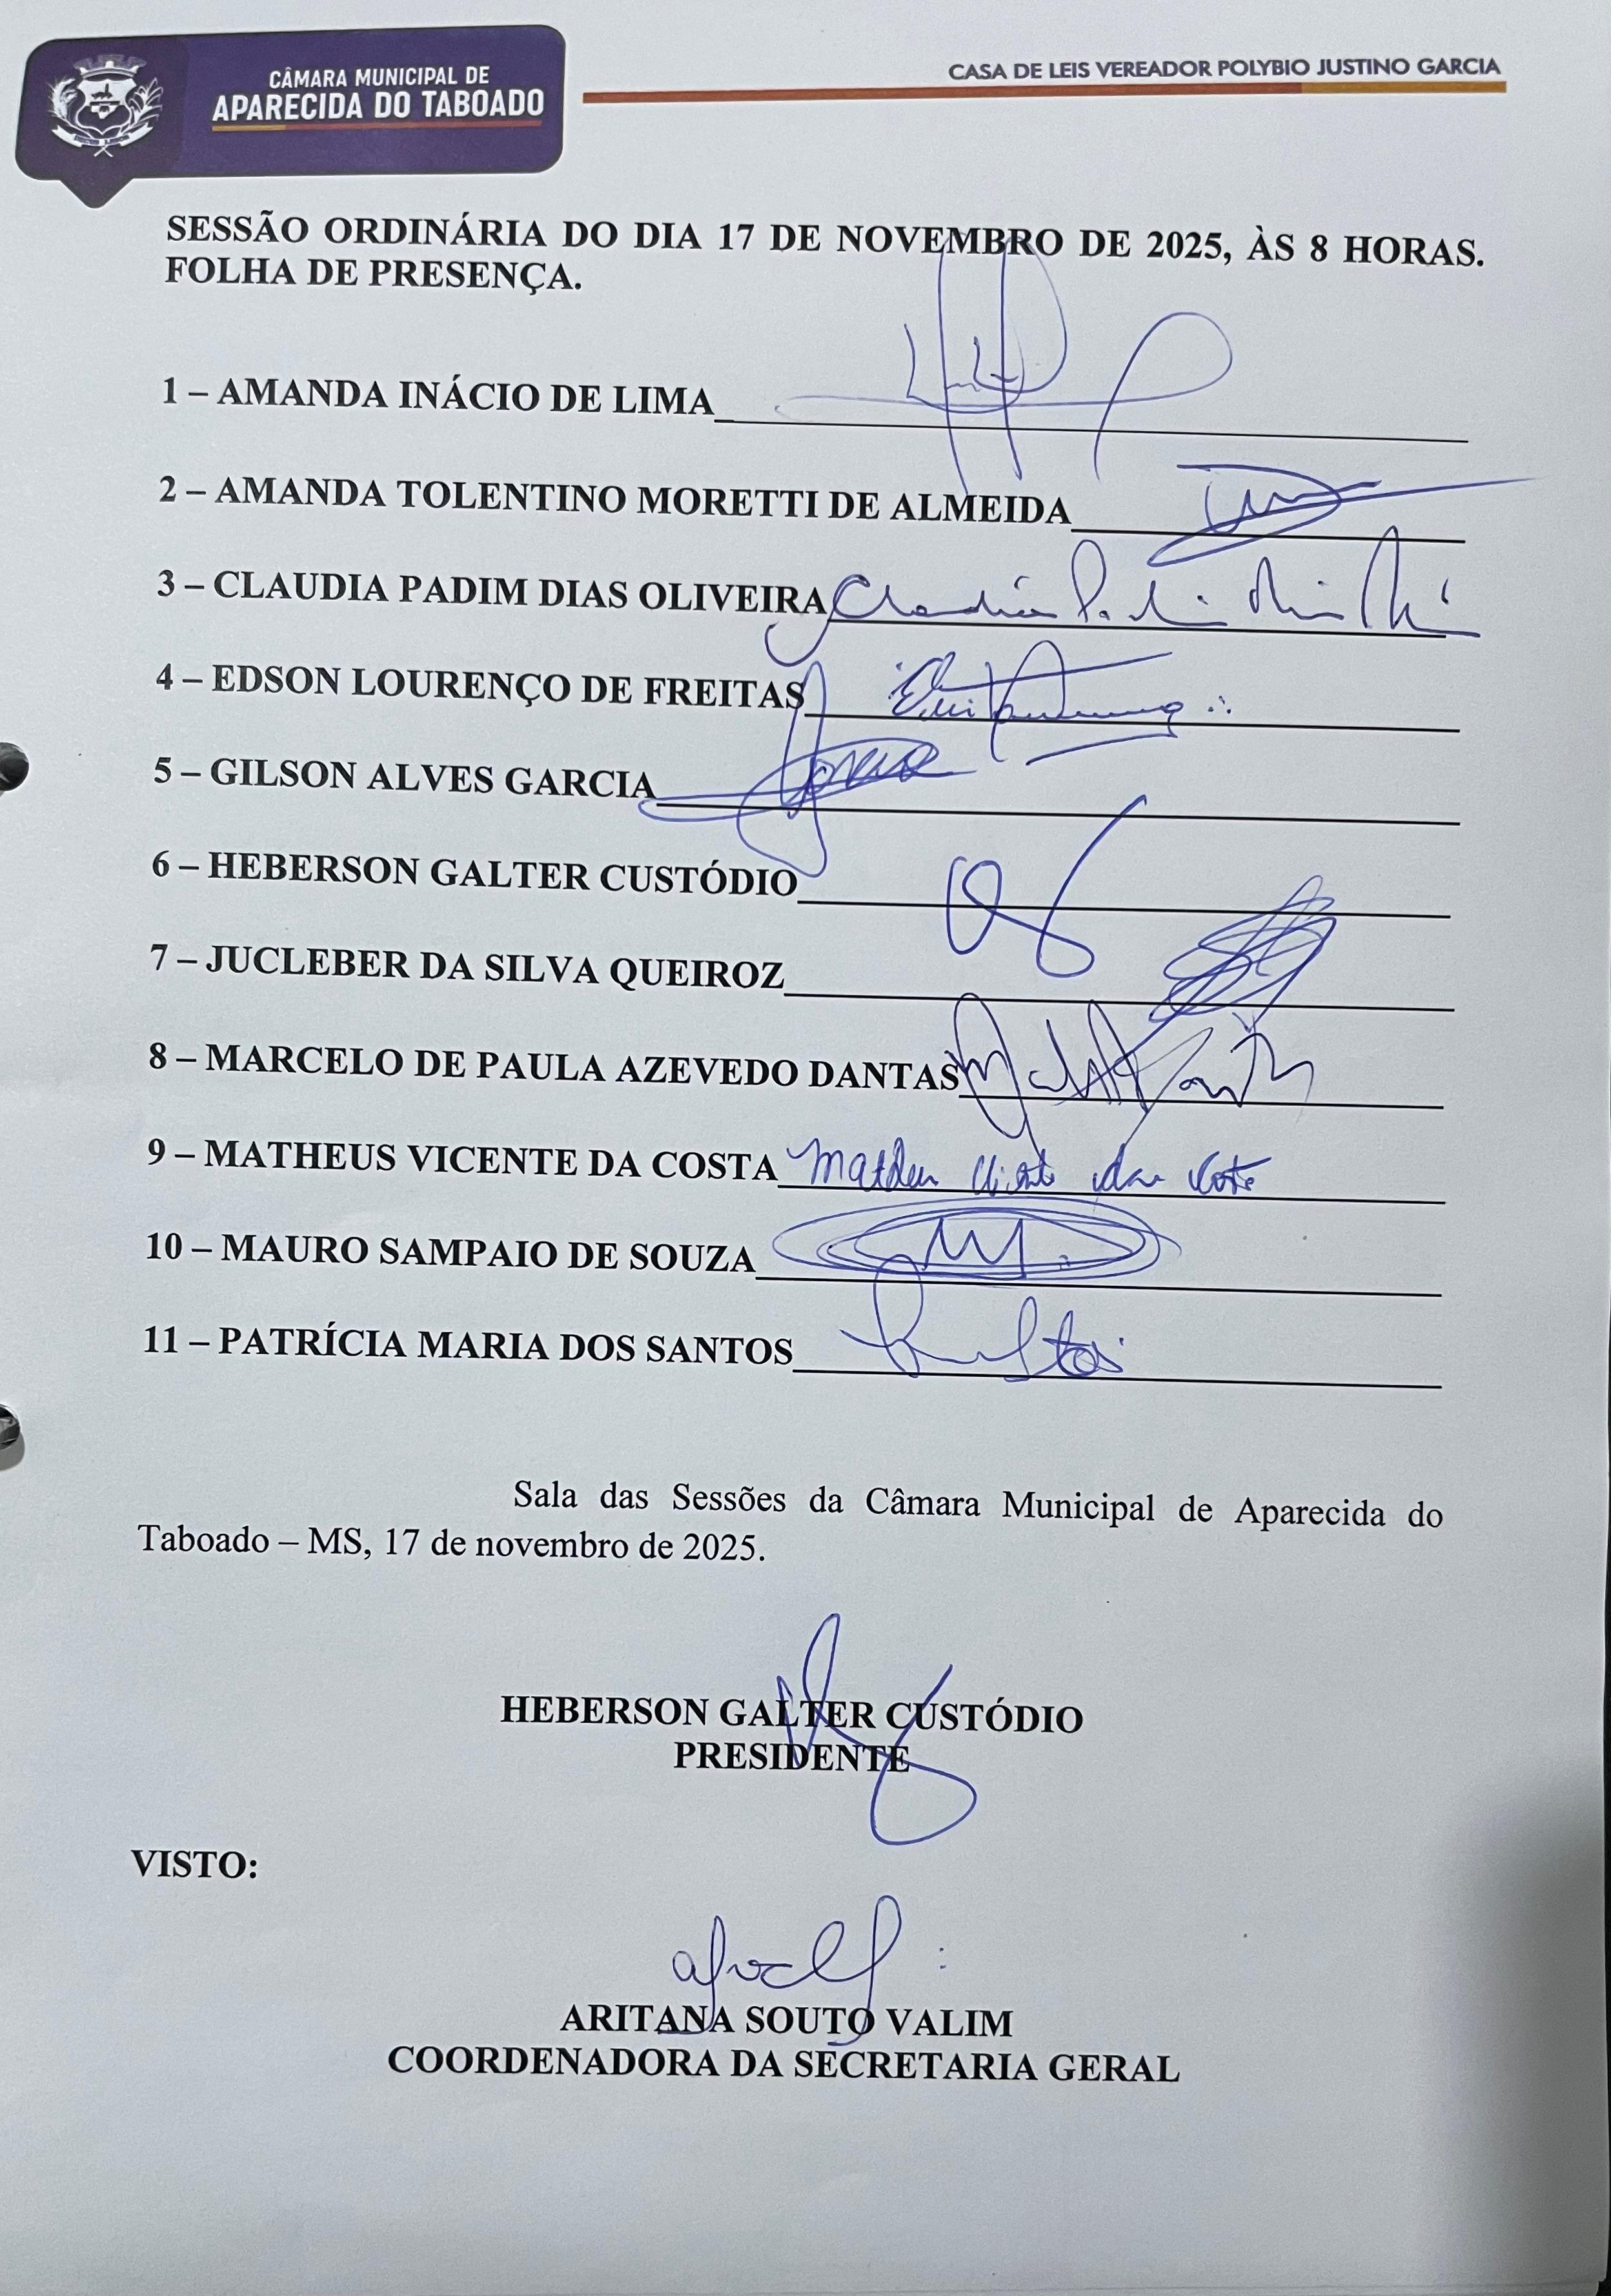 CÂMARA MUNICIPAL DE
APARECIDA DO TABOADO
CASA DE LEIS VEREADOR POLYBIO JUSTINO GARCIA
SESSÃO ORDINÁRIA DO DIA 17 DE NOVEMBRO DE 2025, ÀS 8 HORAS.
FOLHA DE PRESENÇA.
1 – AMANDA INÁCIO DE LIMA
2 – AMANDA TOLENTINO MORETTI DE ALMEIDA
3 – CLAUDIA PADIM DIAS OLIVEIRA Claudia
4 – EDSON LOURENÇO DE FREITAS
5 – GILSON ALVES GARCIA
6 – HEBERSON GALTER CUSTÓDIO
7 – JUCLEBER DA SILVA QUEIROZ
8 – MARCELO DE PAULA AZEVEDO DANTAS
9 – MATHEUS VICENTE DA COSTA
10 – MAURO SAMPAIO DE SOUZA
11 – PATRÍCIA MARIA DOS SANTOS
Sala das Sessões da Câmara Municipal de Aparecida do
Taboado – MS, 17 de novembro de 2025.
HEBERSON GALTER CUSTÓDIO
PRESIDENTE
VISTO:
ARITANA SOUTO VALIM
COORDENADORA DA SECRETARIA GERAL